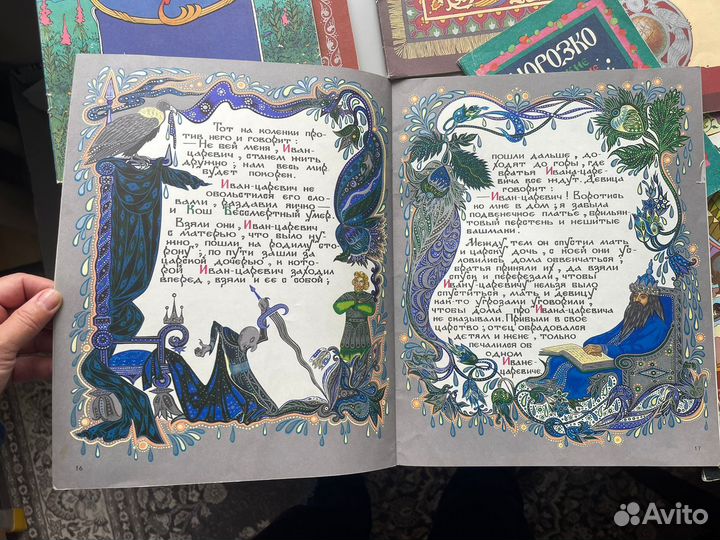 МОРОЗКО
Тот на колении про
тив него и говорит:
— Не бей меня, Иван-
царевич, станем жить
дружно; нам весь мир
будет покорен.
Иван-царевич не
обольстился его сло-
вами, раздавил яичко —
и Кош Бессмертный умер.
Взяли они, Иван-царевич
с матерью, что было ну-
жно, пошли на родиму сто-
рону; по пути зашли за
царской дочерью, к кото-
рой Иван-царевич заходил
вперед, взяли и ее с собой;
16
пошли дальше, до-
ходят до горы, где
братья Ивана-царе-
вича все ждут. Девица
говорит:
— Иван-царевич! Воротись
ко мне в дом; я забыла
подвенечное платье, брильян-
товый перстень и нешитые
башмаки.
Между тем он спустил мать
и царску дочь, с коей они ус-
ловились дома обвенчаться;
братья приняли их, да взяли
спуск и перерезали, чтобы
Ивану-царевичу нельзя было
спуститься, мать и девицу
как-то угрозами уговорили,
чтобы дома про Ивана-царевича
не сказывали. Прибыли в своё
царство; отец обрадовался
детям и жене, только
печалился об
одном
Иване-
царевиче.
17
Avito